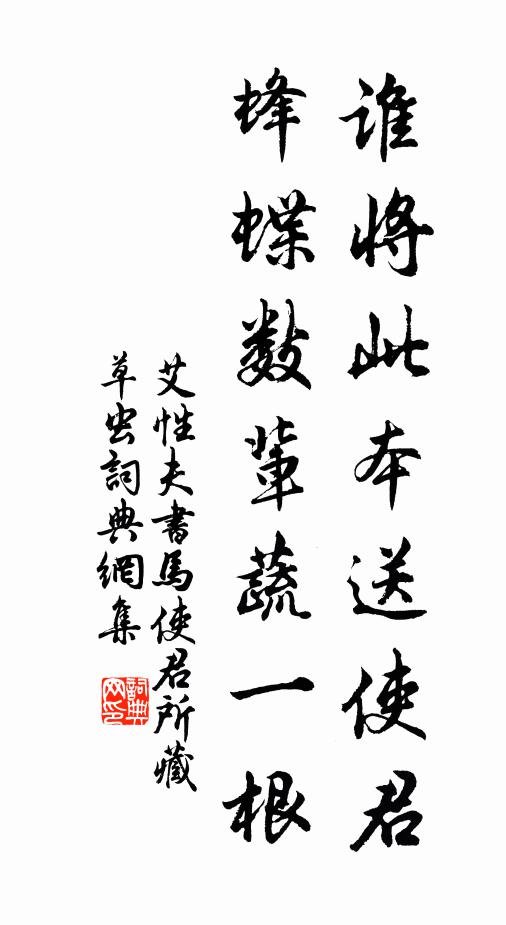 谁將此本送使君
蜂蝶数輩蔬一根
艾性夫書馬使君所藏
草虫詞典網集
詞典网印